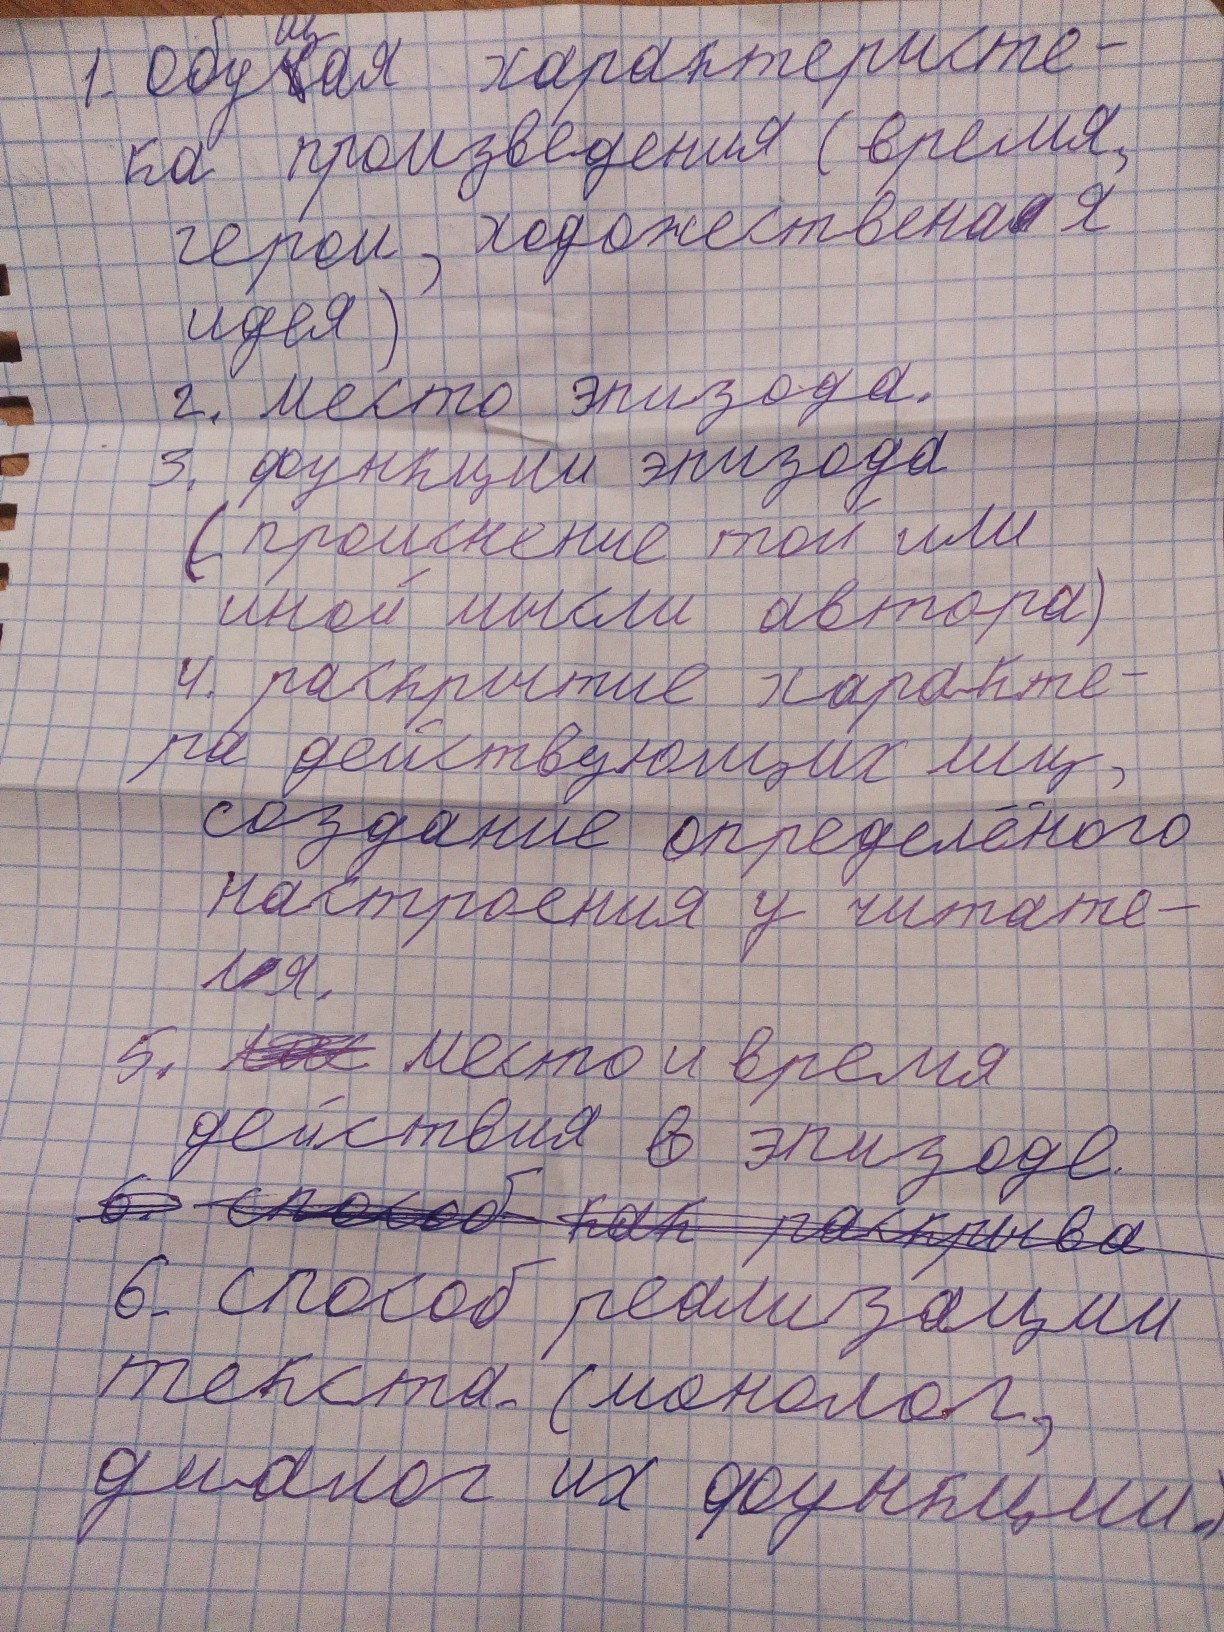 1. Общая характеристе-
ка произведения (время,
герои, ходожественая
идея)
2. Место эпизода.
3. функции эпизода
(происнение той или
иной мысли автора)
4. раскрытие характе-
ра действующих лиц,
создание определёного
настроения у читате-
ля.
5. место и время
действия в эпизоде.
6. способ как раскрыва
6. способ реализации
текста. (монолог,
диалог их функции.)